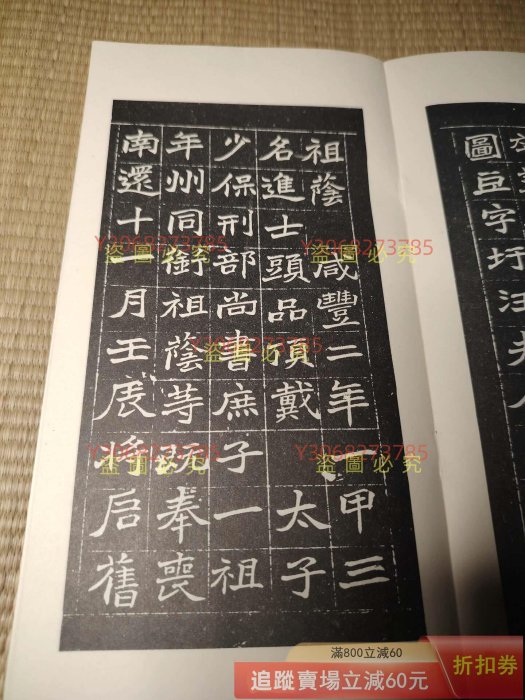 圖
字圩汪夫
祖蔭 咸豐二年 甲三
名進士頭品頂戴 太子
少保刑部尚書庶子一祖
年州同銜祖蔭等既奉喪
南還十一月壬辰將启舊
Y3068273785
盜圖必究
Y3068273785
盜圖必究
Y3068273785
盜圖必究
Y3068273785
盜圖必究
Y3068273785
盜圖必究
滿800立減60
追蹤賣場立減60元
折扣券